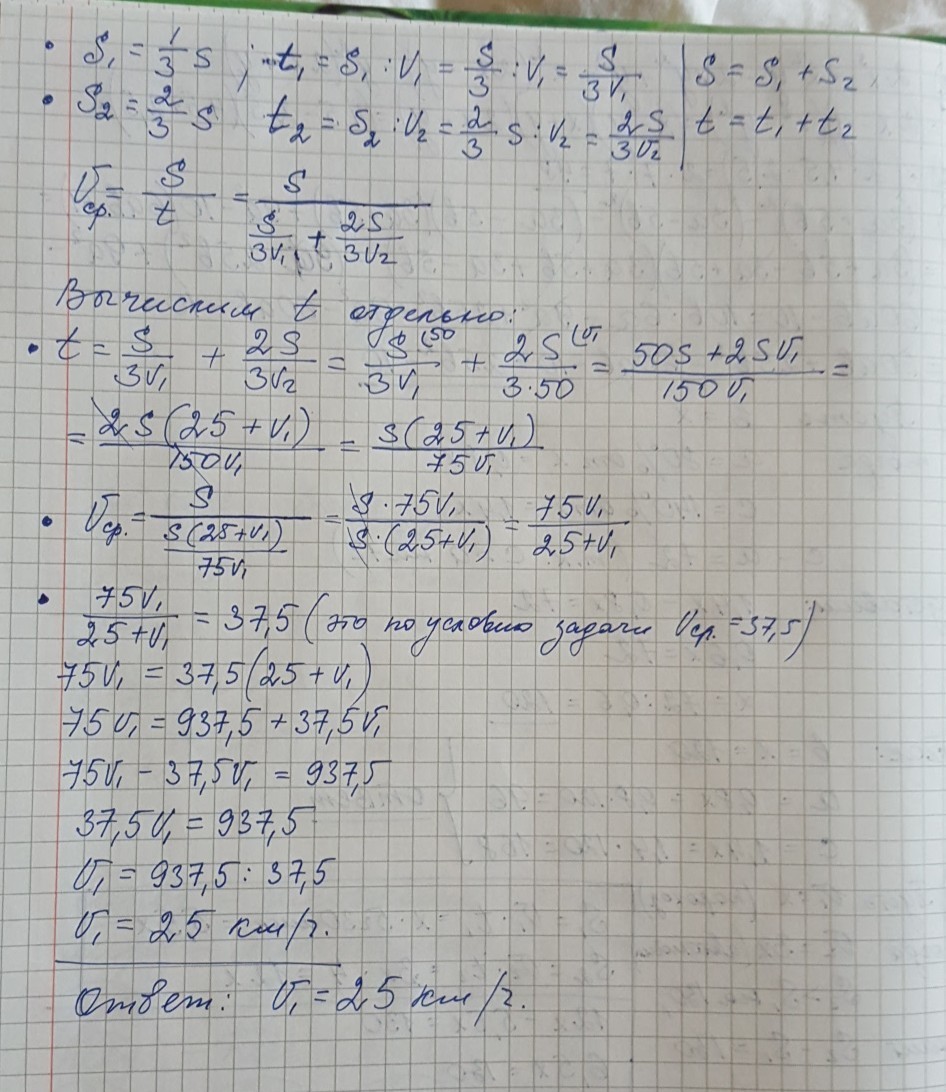 • S₁ = 1/3 S ; t₁ = S₁ : V₁ = S/3 : V₁ = S/3V₁ | S = S₁ + S₂
• S₂ = 2/3 S t₂ = S₂ : V₂ = 2/3 S : V₂ = 2S/3V₂ | t = t₁ + t₂
Vср. = S/t = S/(S/3V₁ + 2S/3V₂)
Вычислим t отдельно:
• t = S/3V₁ + 2S/3V₂ = S(50/3V₁ + 2S(V₁/3·50 = (50S + 2SV₁)/150V₁ =
= 2S(25 + V₁)/150V₁ = S(25 + V₁)/75V₁
• Vср. = S/(S(25+V₁)/75V₁) = S · 75V₁/S · (25+V₁) = 75V₁/(25+V₁)
• 75V₁/(25+V₁) = 37,5 (это по условию задачи Vср. = 37,5)
75V₁ = 37,5(25 + V₁)
75V₁ = 937,5 + 37,5V₁
75V₁ – 37,5V₁ = 937,5
37,5V₁ = 937,5
V₁ = 937,5 : 37,5
V₁ = 25 км/ч.
Ответ: V₁ = 25 км/ч.